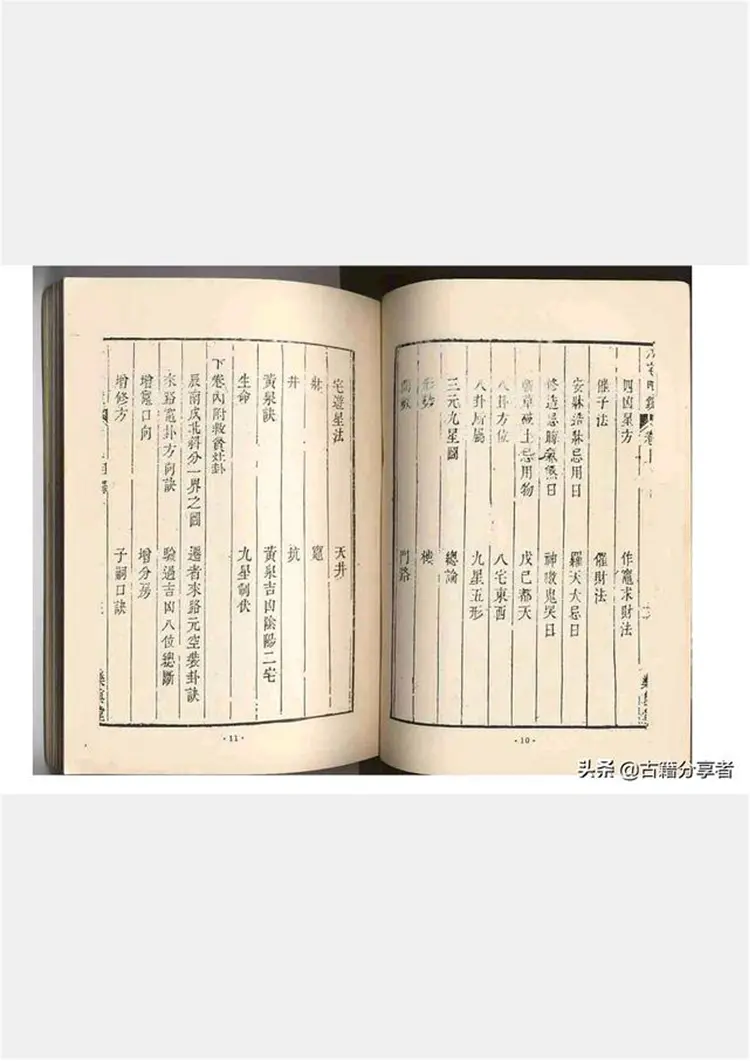 卷上
四凶星方　作竈求財法
催子法　催財法
安牀造牀忌用日　羅天大忌日
修造忌　煞日　神嚎鬼哭日
草破土忌用物　戊己都天
八卦方位　八宅東西
八卦所屬　九星五形
三元九星圖　總論
形勢　樓
間數　門路
·10·
宅遊星法　天井
牀　竈
井　坑
黃泉訣　黃泉吉凶陰陽二宅
生命　九星制伏
下卷內附救貧灶卦
辰南戌北斜分一界之圖　遷者來路元空裝卦訣
來路竈卦方向訣　驗過吉凶八位總斷
增竈口向　增分房
增修方　子嗣口訣
樂真堂
·11·
头条 @古籍分享者